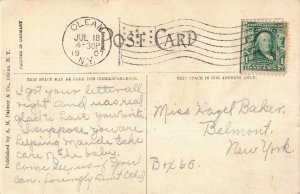 OLEAN
JUL 18
4-30P
1907
N.Y.
POST CARD
THIS SPACE MAY BE USED FOR CORRESPONDENCE.
THIS SIDE IS FOR THE ADDRESS.
PRINTED IN GERMANY
Published by A. M. Palmer & Co., Olean, N. Y.
I got your letter all
right and was real
glad to have you write
I suppose you are
helping Maude take
care of the baby
Come see us if you
can. Lovingly aunt
Miss Hazel Baker,
Belmont,
New York
Box 68